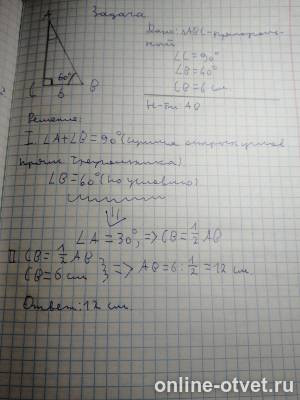 Задача
A
60°
C 6 B
Дано: △ABC-прямоуголь-
ный
∠C=90°
∠B=60°
CB=6 см
Н-ти AB
Решение:
I. ∠A+∠B=90° (сумма острых углов
прям. треугольника)
∠B=60° (по условию)
⇓
∠A=30°, => CB=1/2 AB
II CB=1/2 AB
CB=6 см } => AB=6:1/2=12 см.
Ответ: 12 см.
online-otvet.ru